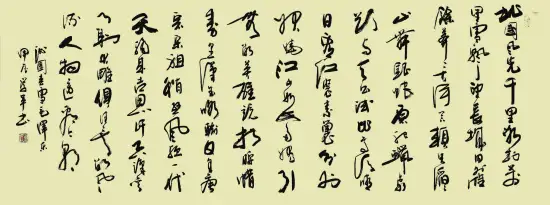 北國风光千里冰封萬
里雪飘望长城内外惟
餘莽莽大河上下顿失滔滔
山舞银蛇原驰蜡象
欲与天公试比高须晴
日看红装素裹分外妖
娆江山如此多娇引
無数英雄竞折腰惜
秦皇汉武略输文采唐
宗宋祖稍逊风骚一代
天骄成吉思汗只识弯
弓射大雕俱往矣数风
流人物还看今朝
沁园春雪毛泽东
甲午
书